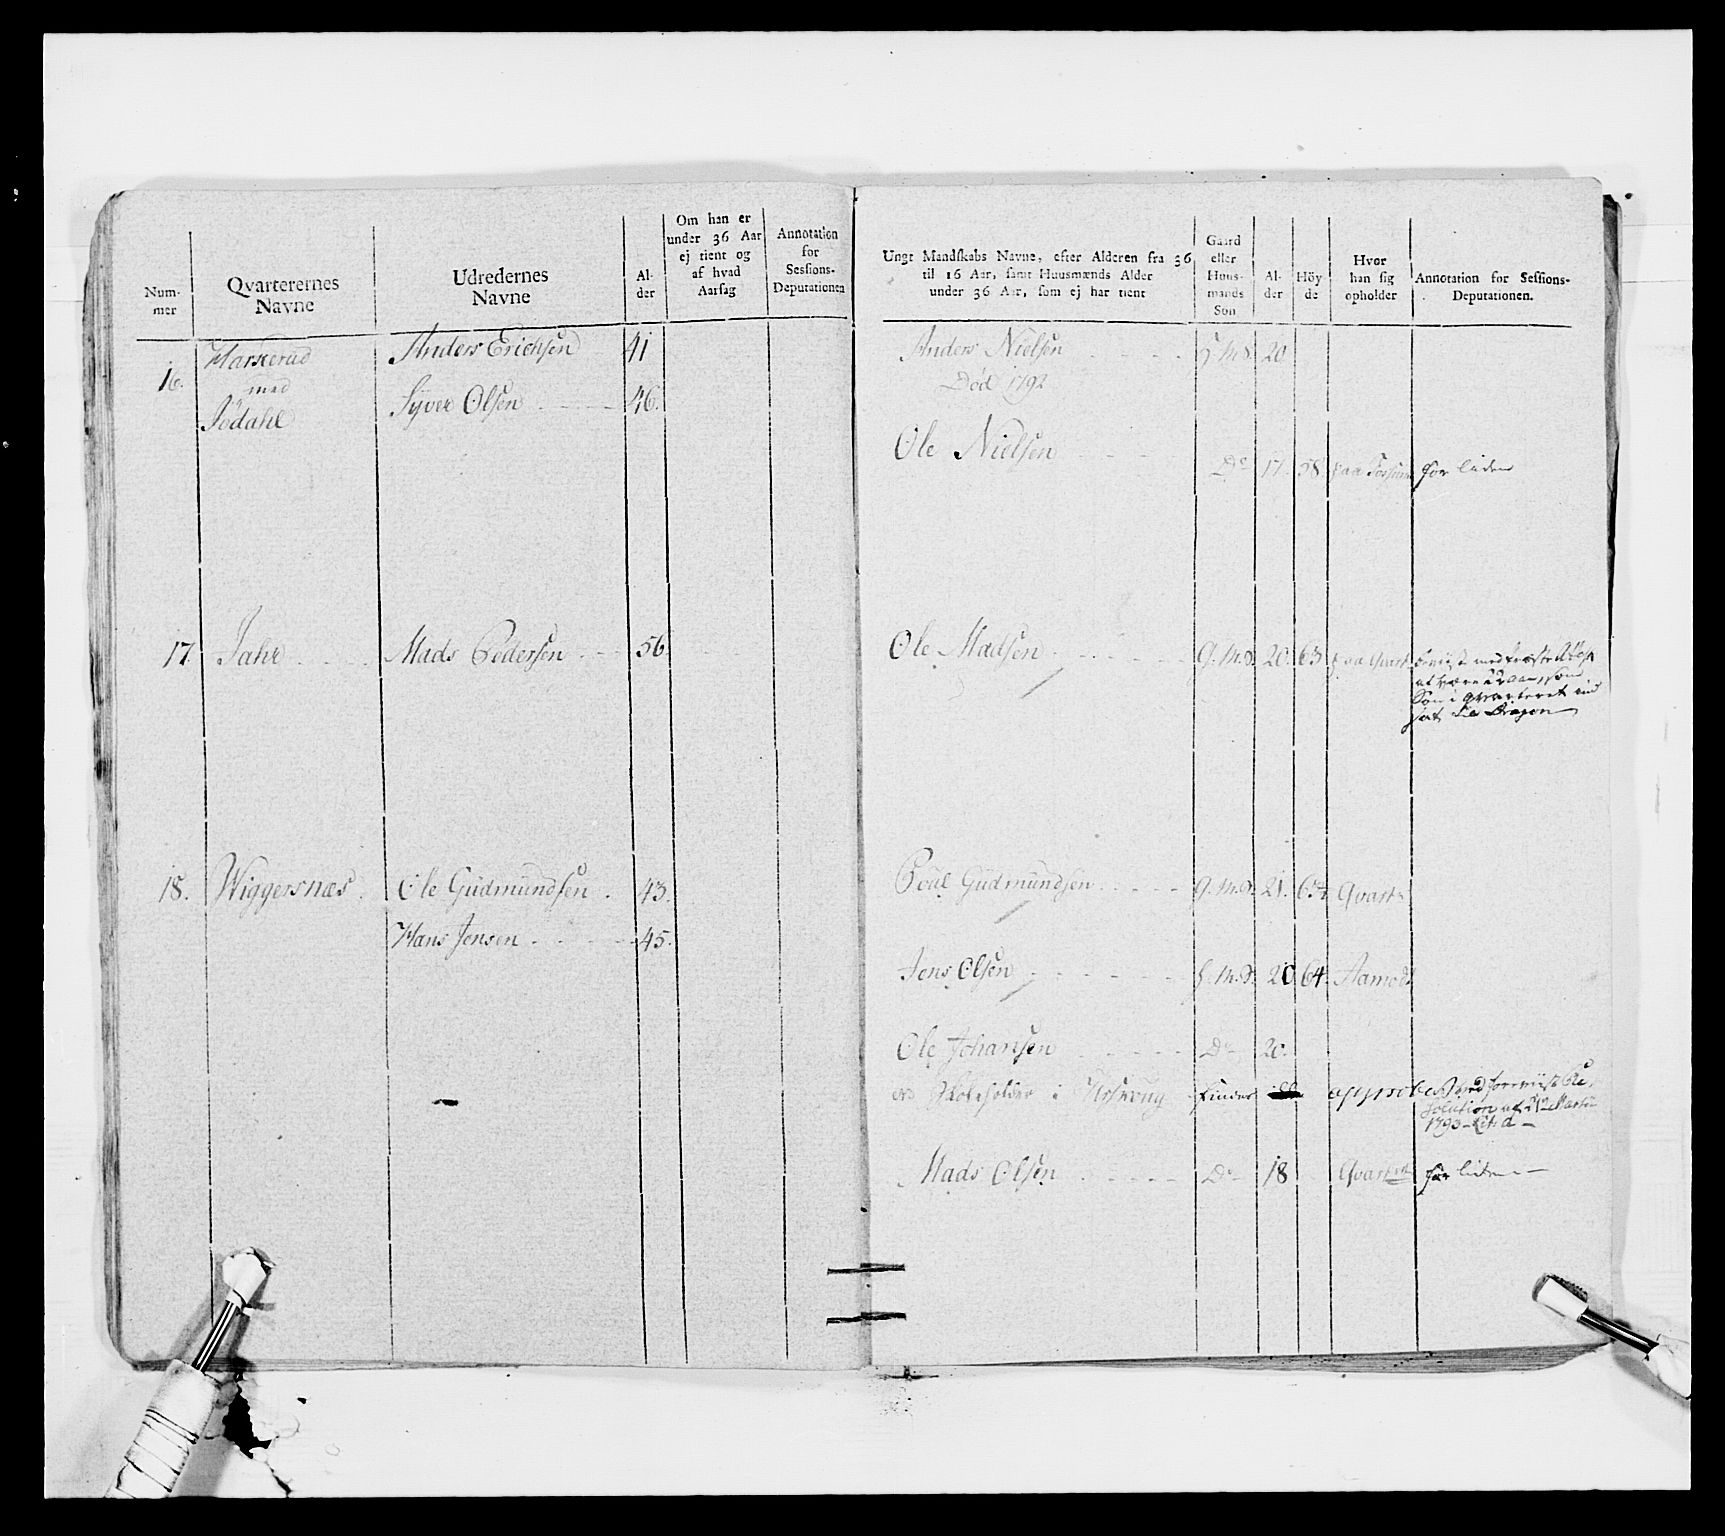 Num-
mer
Qvarterernes
Navne
Udredernes
Navne
Al-
der
Om han er
under 36 Aar
ej tient og
af hvad
Aarsag
Annotation
for
Sessions-
Deputationen
16. Harkerud Anders Erichsen 41
med
Jödahl Syver Olsen 46.
17. Jahr Mads Pedersen 56
18. Wiggersnæs Ole Gudmundsen 43.
Hans Jensen 45.
Ungt Mandskabs Navne, efter Alderen fra 36
til 16 Aar, samt Huusmænds Alder
under 36 Aar, som ej har tient
Gaard
eller
Huus-
mands
Son
Al-
der
Höy
de
Hvor
han sig
opholder
Annotation for Sessions-
Deputationen.
Anders Nielsen g. m. S. 20
Död 1792
Ole Nielsen
Do 17. 58 paa for liden
Ole Madsen g. m. S. 20. 63 paa Qvart
at være
Son i qvarteret ind
sat til Dragon
Poul Gudmundsen g. m. S. 21. Qvart
Jens Olsen m. S. 20 64. Aamodt
Ole Johansen Do 20.
er Skoleholder i
solution af Martii
1793 Lit. a
Mads Olsen Do 18 Qvart for liden